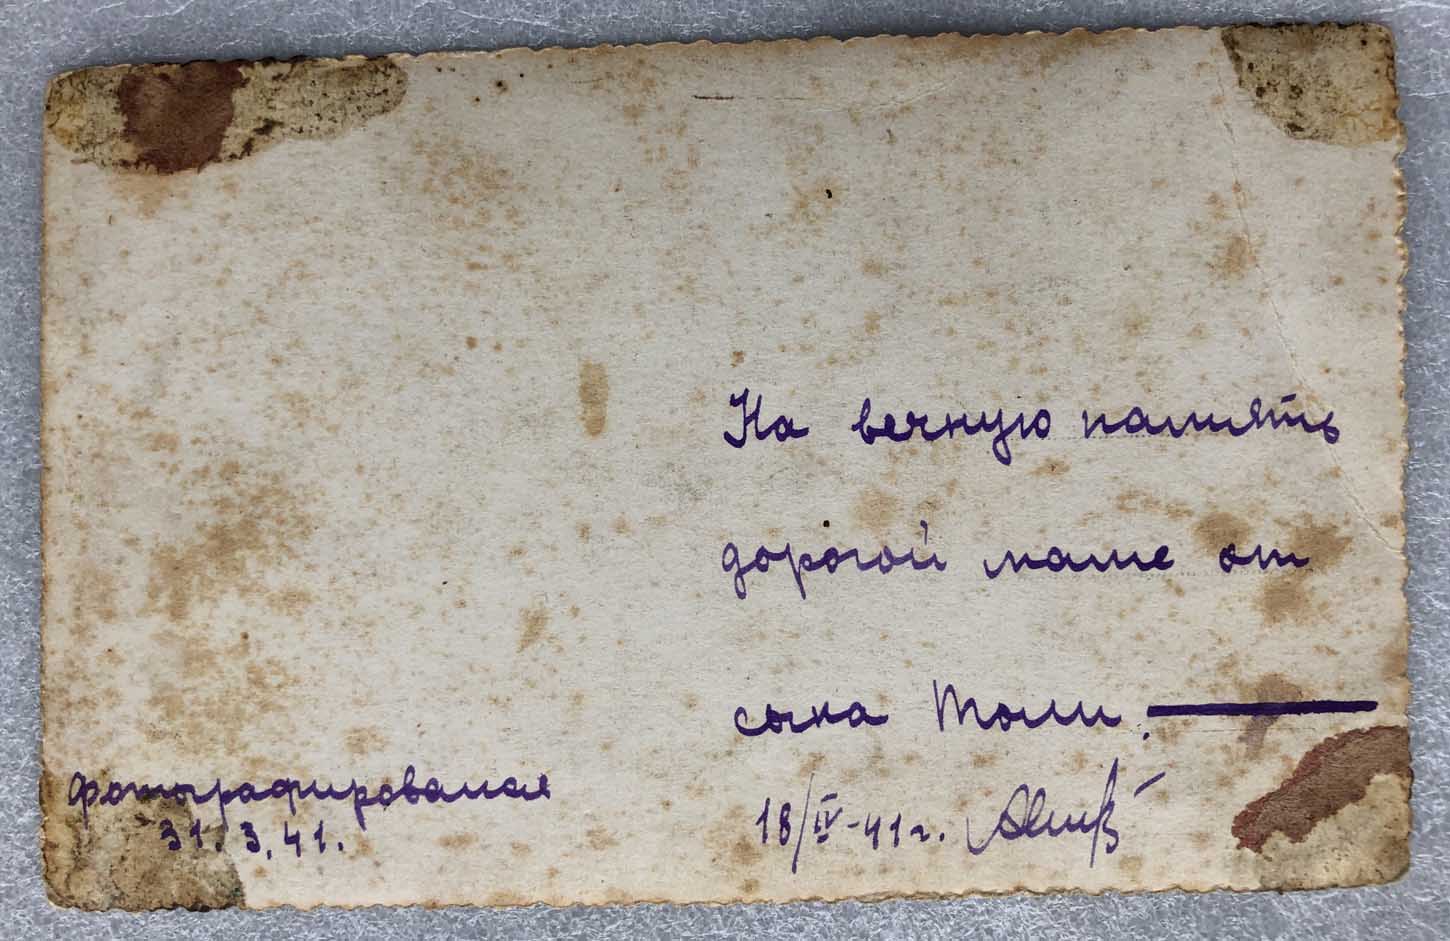 На вечную память
дорогой маме от
сына Толи.
18/IV-41 г.
фотографировался
31.3.41.